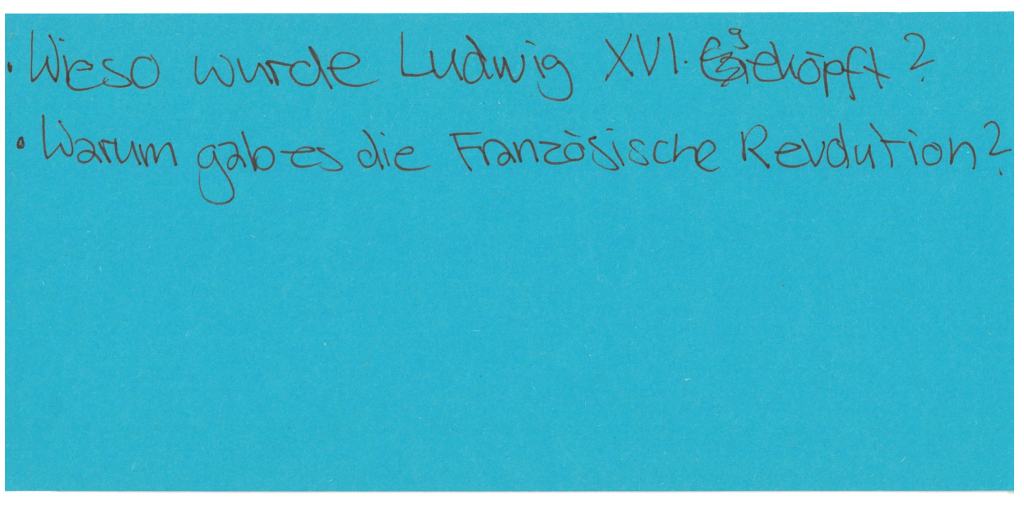 • Wieso wurde Ludwig XVI. geköpft?
• Warum gab es die Französische Revolution?